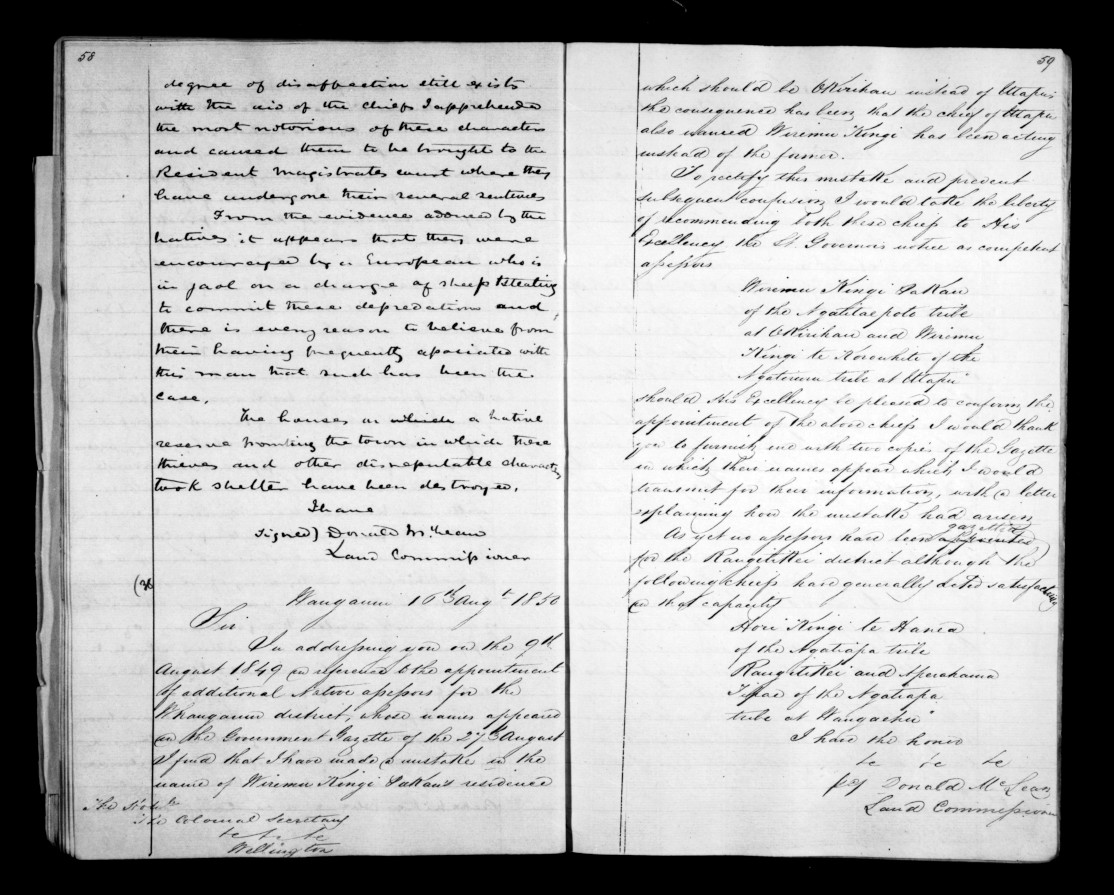 58
degree of disaffection still exists
with the aid of the chiefs I apprehended
the most notorious of these characters
and caused them to be brought to the
Resident Magistrates court where they
have undergone their several sentences
From the evidence adduced by the
natives it appears that they were
encouraged by a European who is
in jaol on a charge of sheep stealing
to commit these depredations and
there is every reason to believe from
their having frequently associated with
this man that such has been the
case.
The houses on which a native
reserve fronting the town in which these
thieves and other disreputable characters
took shelter have been destroyed.
I have
Signed) Donald McLean
Land Commissioner
Wanganui 16th Augt 1850
Sir
In addressing you on the 9th
August 1849 in reference to the appointment
of additional Native assessors for the
Whanganui district, whose names appeared
in the Government Gazette of the 27th August
I find that I have made a mistake in the
name of Wiremu Kingi Takau's residence
The Honble
The Colonial Secretary
&c &c &c
Wellington
59
which should be Okirihau instead of Utapu
the consequence has been that the chief of Utapu
also named Wiremu Kingi has been acting
instead of the former.
To rectify this mistake and prevent
subsequent confusion I would take the liberty
of recommending both these chiefs to His
Excellency the Lt Governor's notice as competent
assessors
Wiremu Kingi Takau
of the tribe
at Okirihau and Wiremu
Kingi te of the
tribe at Utapu
should His Excellency be pleased to confirm the
appointment of the above chiefs I would thank
you to furnish me with two copies of the Gazette
in which their names appear which I would
transmit for their information, with a letter
explaining how the mistake had arisen
As yet no assessors have been gazetted
for the Rangitikei district although the
following chiefs have generally acted satisfactorily
in that capacity
Hori Kingi te Hanea
of the Ngatiapa tribe
Rangitikei and Aperahama
Tipae of the Ngatiapa
tribe at Wangaehu
I have the honor
&c &c &c
Donald McLean
Land Commissioner